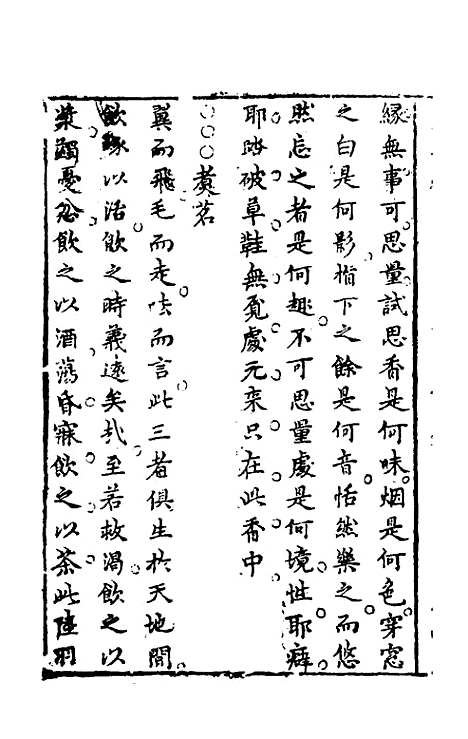 緣無事可思量試思香是何味烟是何色穿窓
之白是何影指下之餘是何音恬然樂之而悠
然忘之者是何趣不可思量處是何境性耶癖
耶踏破草鞋無覓處元來只在此香中
○○○煑茗
翼而飛毛而走呿而言此三者俱生於天地間
飲啄以活飲之時義遠矣哉至若救渴飲之以
漿蠲憂忿飲之以酒蕩昏寐飲之以茶此陸羽